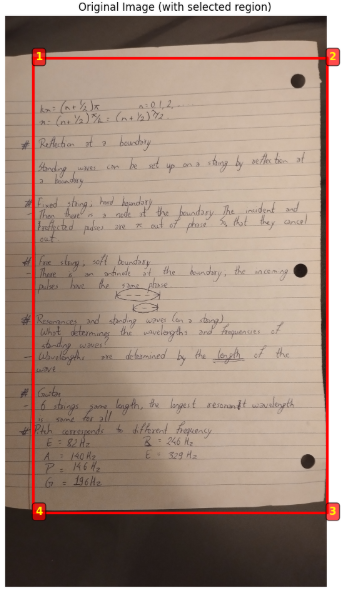 Original Image (with selected region)
1
2
kx = (n+1/2)π n=0,1,2,
x = (n+1/2)π/k = (n+1/2)λ/2
# Reflection at a boundary
Standing waves can be set up on a string by reflection at
a boundary
# Fixed string, hard boundary
- Then there is a node at the boundary. The incident and
reflected pulses are π out of phase so that they cancel
out.
# Free string, soft boundary
- There is an antinode at the boundary, the incoming
pulses have the same phase
# Resonances and standing waves (on a string)
- What determines the wavelengths and frequencies of
standing waves?
- Wavelengths are determined by the length of the
wave
# Guitar
- 6 strings same length, the longest resonant wavelength
is same for all
# Pitch corresponds to different frequency
E = 82 Hz B = 246 Hz
A = 140 Hz E = 329 Hz
D = 146 Hz
G = 196 Hz
4
3